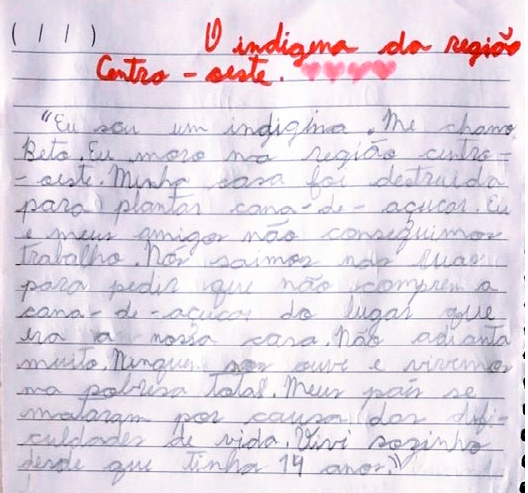 ( / / ) O indigena da região
Centro - oeste.
"Eu sou um indigina. Me chamo
Beto. Eu moro na região centro-
-oeste. Minha casa foi destruida
para plantar cana-de-açucar. Eu
e meus amigos não conseguimos
trabalho. Nos saimos nas ruas
para pedir que não comprem a
cana-de-açucar do lugar que
era a nossa casa. Não adianta
muito. Ninguen nos ouvi e vivemos
na pobresa total. Meus pais se
mataram por causa das difi-
culdades de vida. Vivi sozinho
desde que tinha 14 anos."